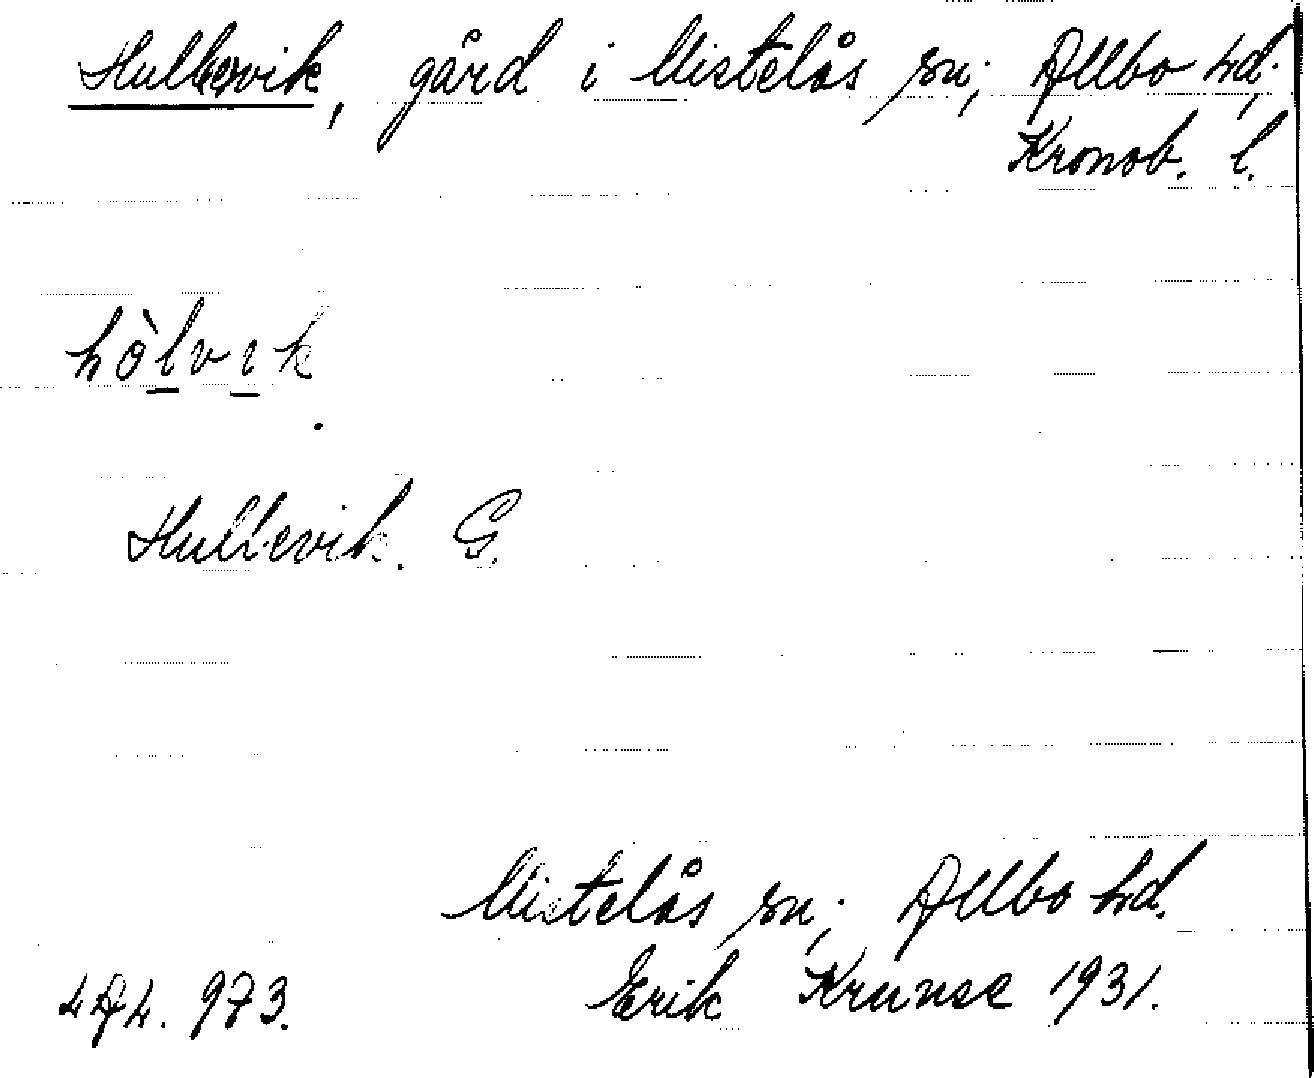 Hullervik, gård i Mistelås sn; Allbo hd.,
Kronob. l.
hòlvık
Hullevik. G.
Mistelås sn; Allbo hd.
Erik Krunse 1931.
973.